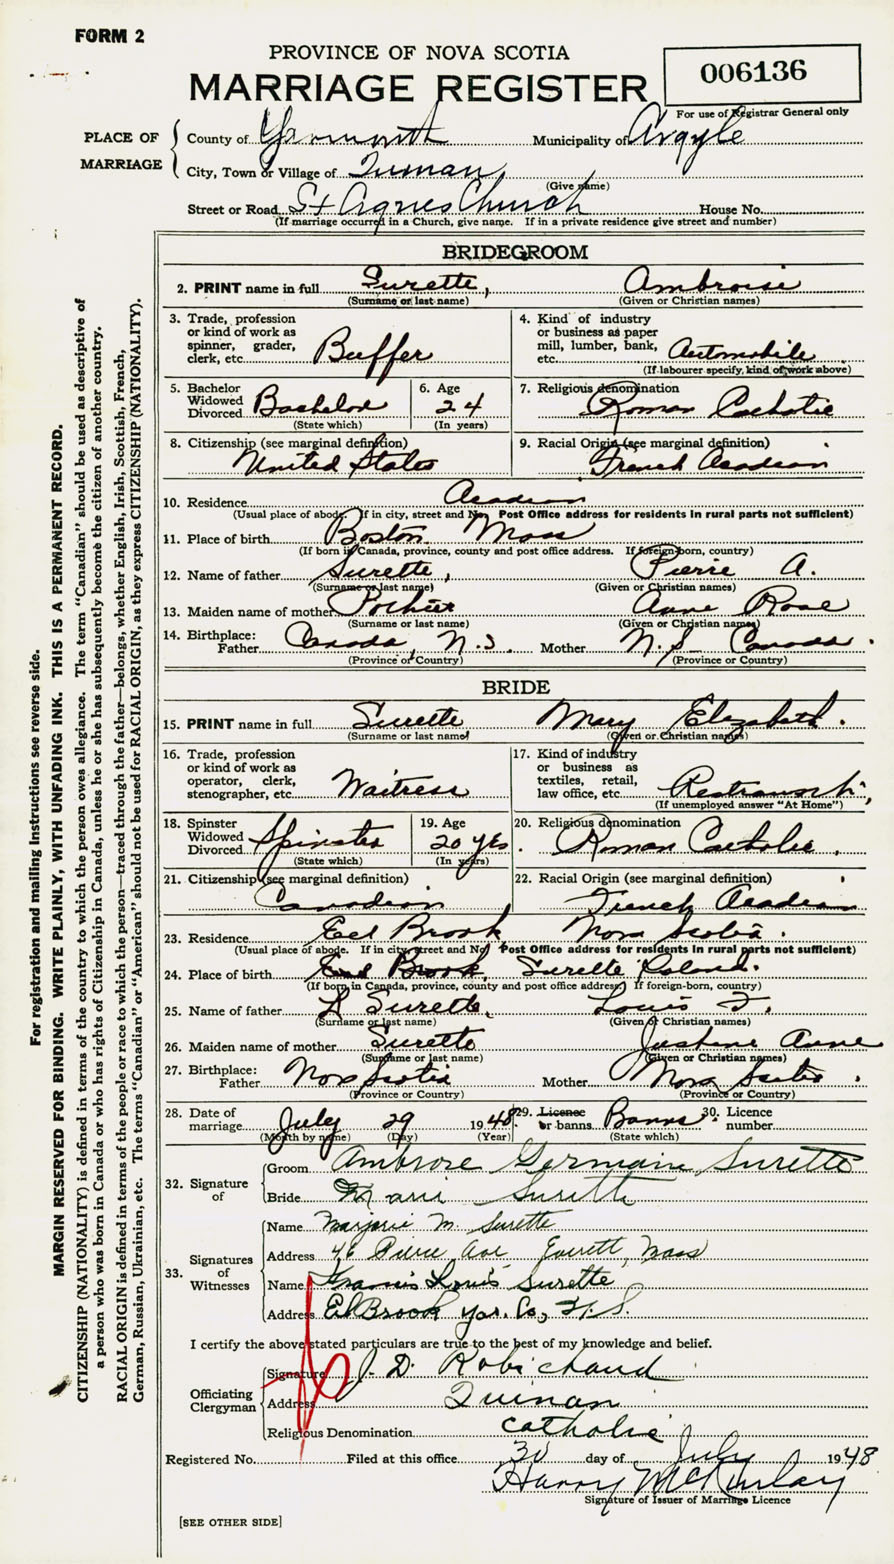 FORM 2
PROVINCE OF NOVA SCOTIA
MARRIAGE REGISTER
006136
For use of Registrar General only
PLACE OF MARRIAGE
County of Yarmouth Municipality of Argyle
City, Town or Village of Quinan
(Give name)
Street or Road St Agnes Church House No.
(If marriage occurred in a Church, give name. If in a private residence give street and number)
BRIDEGROOM
2. PRINT name in full Surette, Ambroise
(Surname or last name) (Given or Christian names)
3. Trade, profession or kind of work as spinner, grader, clerk, etc. Buffer
4. Kind of industry or business as paper mill, lumber, bank, etc. Automobile
(If labourer specify, kind of work above)
5. Bachelor Widowed Divorced Bachelor
(State which)
6. Age 24
(In years)
7. Religious denomination Roman Catholic
8. Citizenship (see marginal definition) United States
9. Racial Origin (see marginal definition) French Acadian
10. Residence Acadian
(Usual place of abode. If in city, street and No. Post Office address for residents in rural parts not sufficient)
11. Place of birth Boston Mass
(If born in Canada, province, county and post office address. If foreign-born, country)
12. Name of father Surette, Pierre A.
(Surname or last name) (Given or Christian names)
13. Maiden name of mother Pothier Anne Rose
(Surname or last name) (Given or Christian names)
14. Birthplace: Father Canada, N.S. Mother N.S. Canada.
(Province or Country) (Province or Country)
BRIDE
15. PRINT name in full Surette Mary Elizabeth.
(Surname or last name) (Given or Christian names)
16. Trade, profession or kind of work as operator, clerk, stenographer, etc. Waitress
17. Kind of industry or business as textiles, retail, law office, etc.
(If unemployed answer "At Home")
18. Spinster Widowed Divorced Spinster
(State which)
19. Age 20 yrs.
(In years)
20. Religious denomination Roman Catholic.
21. Citizenship (see marginal definition) Canadian
22. Racial Origin (see marginal definition) French Acadian
23. Residence Eel Brook Nova Scotia.
(Usual place of abode. If in city, street and No. Post Office address for residents in rural parts not sufficient)
24. Place of birth Eel Brook, Surette Island.
(If born in Canada, province, county and post office address) If foreign-born, country)
25. Name of father L Surette, Louis F.
(Surname or last name) (Given or Christian names)
26. Maiden name of mother Surette Justine Anne
(Surname or last name) (Given or Christian names)
27. Birthplace: Father Nova Scotia Mother Nova Scotia.
(Province or Country) (Province or Country)
28. Date of marriage July 29 1948.
(Month by name) (Day) (Year)
29. Licence or banns Banns
(State which)
30. Licence number
32. Signature of
Groom Ambrose Germain Surette
Bride Marie Surette
33. Signatures of Witnesses
Name Marjorie M. Surette
Address 46 Pierce Ave Everett, Mass
Name Francis Louis Surette
Address Eel Brook Yar. Co., N.S.
I certify the above stated particulars are true to the best of my knowledge and belief.
Officiating Clergyman
Signature J. D. Robichaud
Address Quinan
Religious Denomination Catholic
Registered No. Filed at this office 30 day of July 1948
Harry McKinlay
Signature of Issuer of Marriage Licence
[SEE OTHER SIDE]
For registration and mailing instructions see reverse side.
MARGIN RESERVED FOR BINDING. WRITE PLAINLY, WITH UNFADING INK. THIS IS A PERMANENT RECORD.
CITIZENSHIP (NATIONALITY) is defined in terms of the country to which the person owes allegiance. The term "Canadian" should be used as descriptive of
a person who was born in Canada or who has rights of Citizenship in Canada, unless he or she has subsequently become the citizen of another country.
RACIAL ORIGIN is defined in terms of the people or race to which the person—traced through the father—belongs, whether English, Irish, Scottish, French,
German, Russian, Ukrainian, etc. The terms "Canadian" or "American" should not be used for RACIAL ORIGIN, as they express CITIZENSHIP (NATIONALITY).